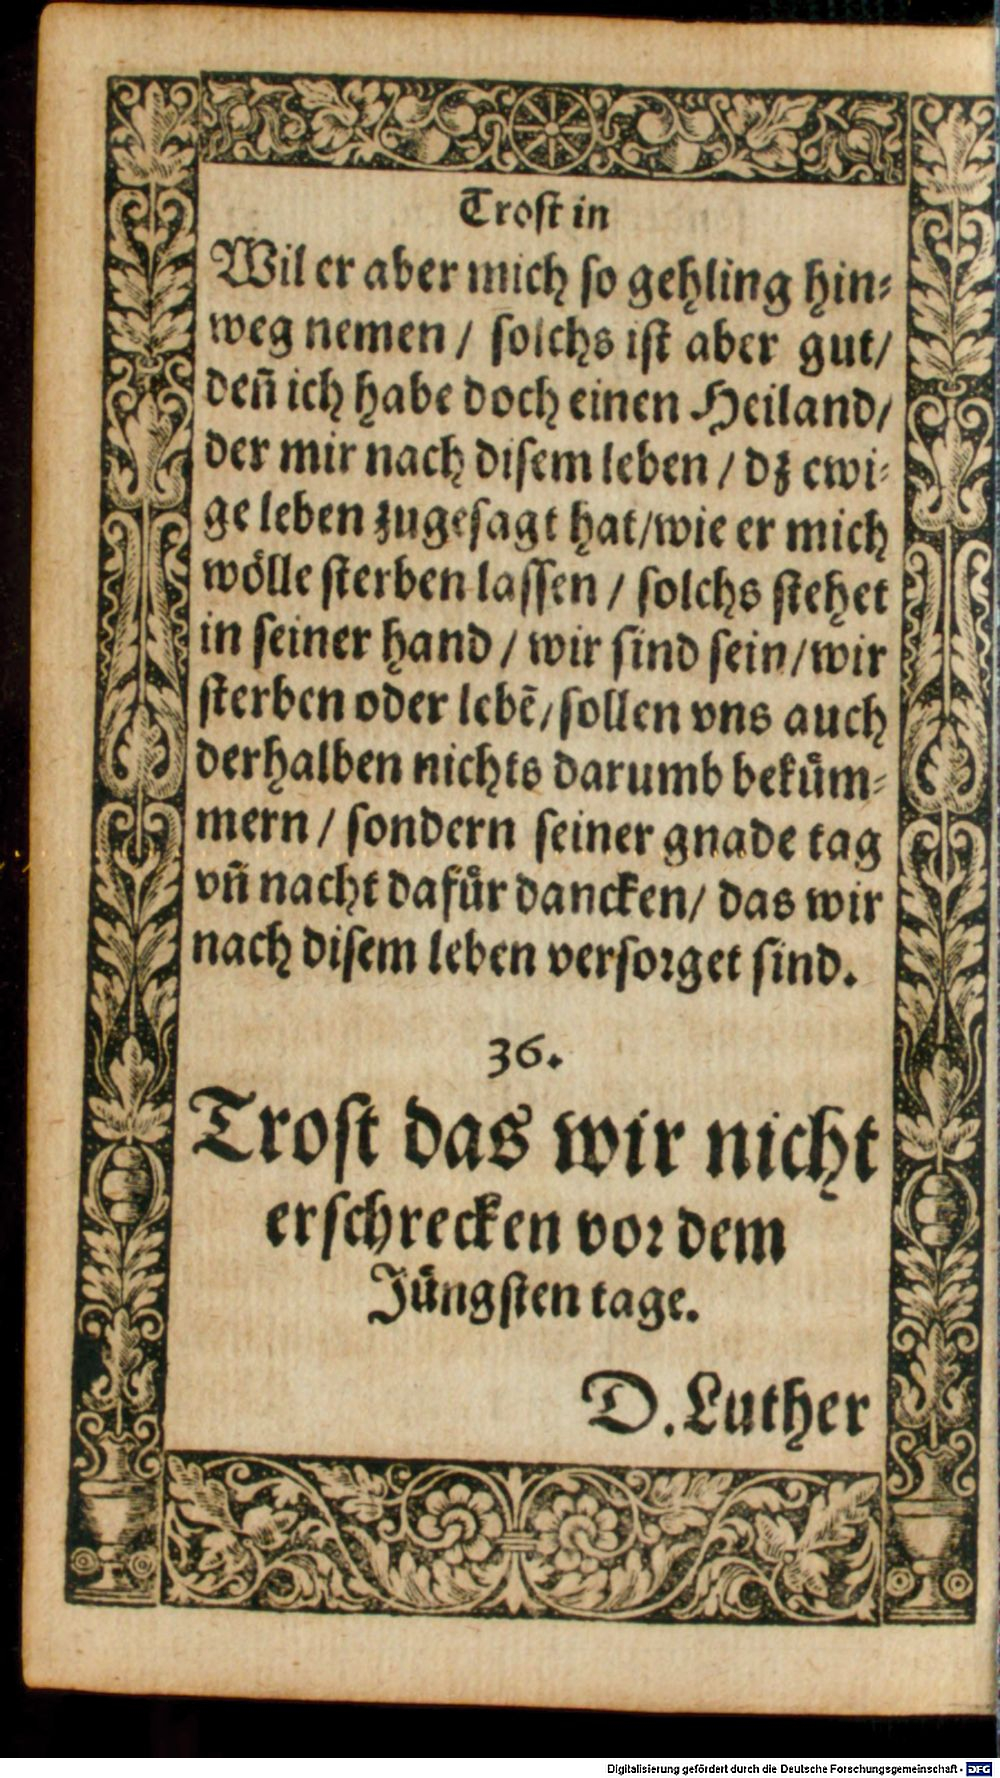 Trost in
Wil er aber mich so gehling hin⸗
weg nemen / solchs ist aber gut/
deñ ich habe doch einen Heiland/
der mir nach disem leben / dz ewi⸗
ge leben zugesagt hat/wie er mich
wölle sterben lassen / solchs stehet
in seiner hand / wir sind sein/wir
sterben oder lebẽ/sollen vns auch
derhalben nichts darumb bekuͤm⸗
mern / sondern seiner gnade tag
vñ nacht dafuͤr dancken/ das wir
nach disem leben versorget sind.
36.
Trost das wir nicht
erschrecken vor dem
Juͤngsten tage.
D. Luther
Digitalisierung gefördert durch die Deutsche Forschungsgemeinschaft - DFG